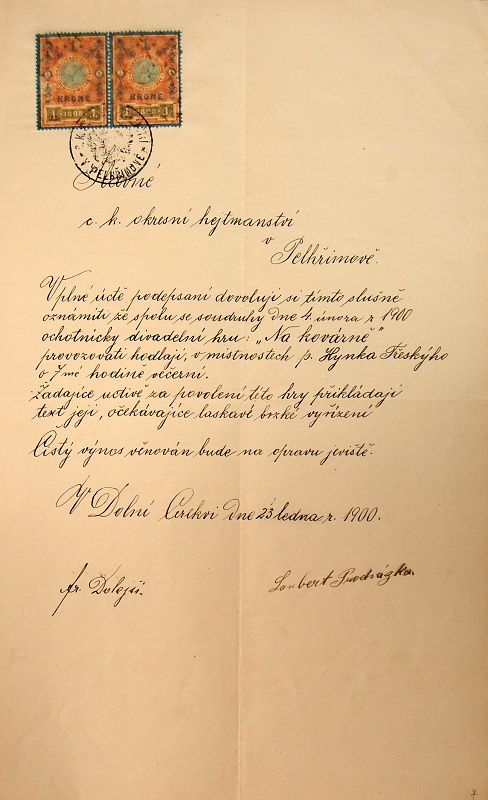 KRONE KRONE
1 1898 1 1 1898 1
V PELHŘIMOVĚ
Slavné
c. k. okresní hejtmanství
v
Pelhřimově.
V plné úctě podepsaní dovolují si tímto slušně
oznámiti že spolu se soudruhy dne 4. února r 1900
ochotnicky divadelní hru: „Na kovárně"
provozovati hodlají, v místnostech p. Hynka Třeskýho
o 7mé hodině večerní.
Žádajíce uctivě za povolení této hry přikládají
text její, očekávajíce laskavě brzké vyřízení
Čistý výnos věnován bude na opravu jeviště.
V Dolní Cerekvi dne 23 ledna r. 1900.
fr. Dolejší.
Lambert Procházka.
7